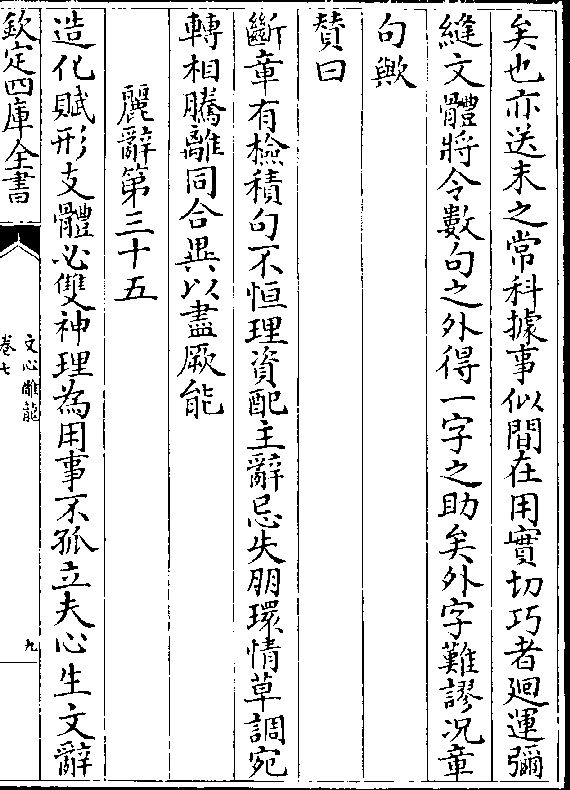 矣也亦送末之常科據事似閒在用實切巧者廻運彌
縫文體將令數句之外得一字之助矣外字難謬况章
句歟
賛曰
斷章有檢積句不恒理資配主辭忌失朋環情草調宛
轉相騰離同合異以盡厥能
麗辭第三十五
造化賦形支體必雙神理為用事不孤立夫心生文辭
欽定四庫全書
文心雕龍
卷七
九